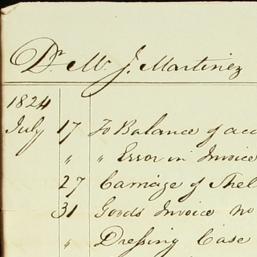 Dr Mr J. Martinez
1824
July 17 To Balance of acc
" " Error in Invoice
27 Carriage of Shel
31 Goods Invoice no
" Dressing Case